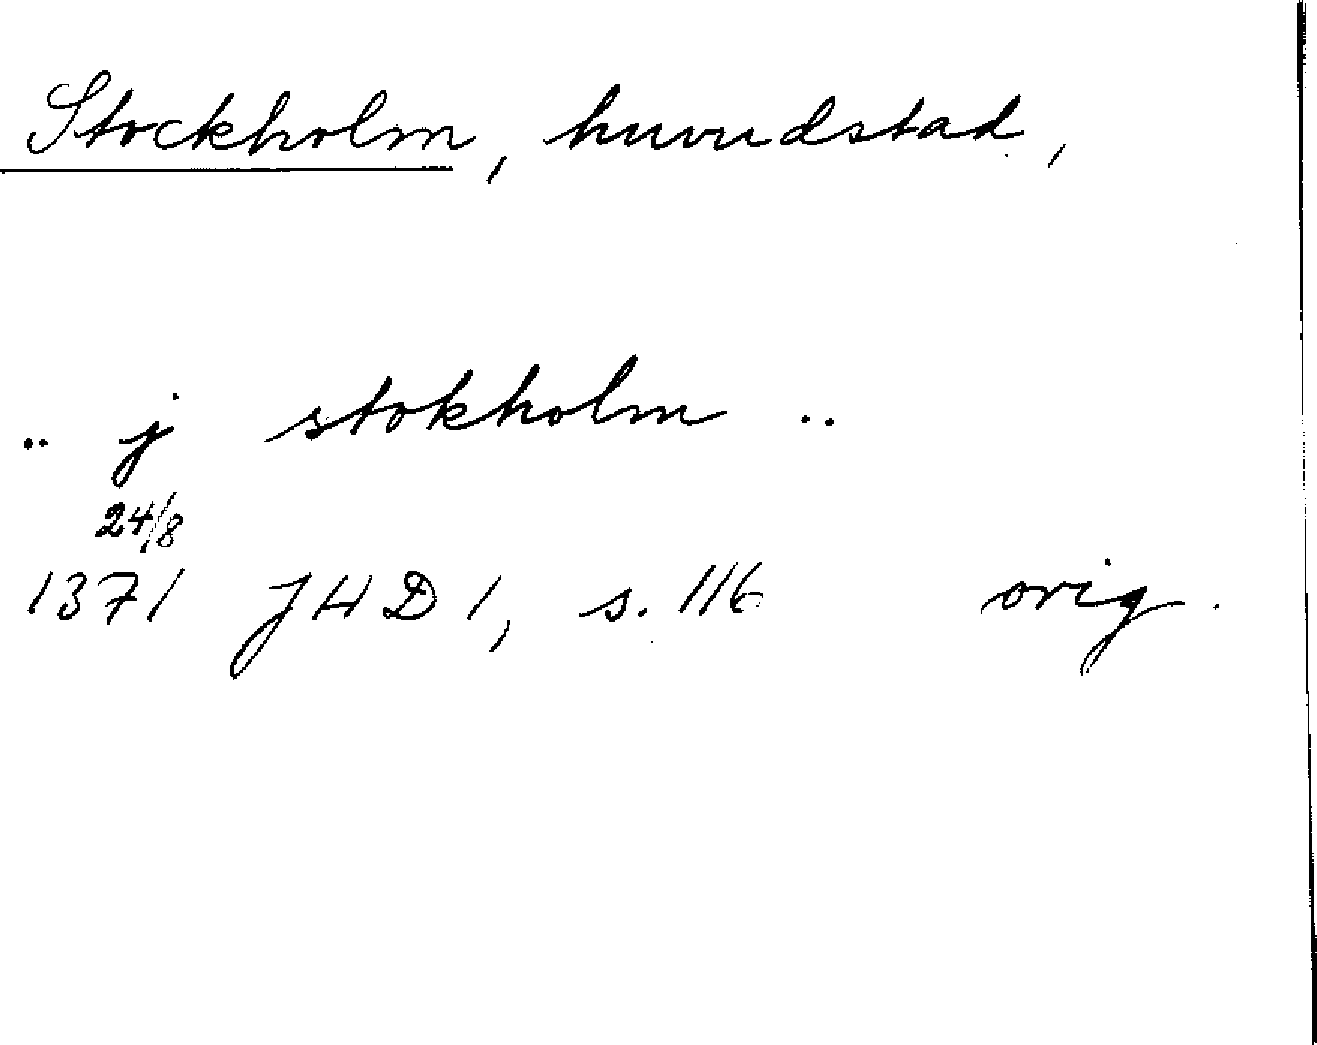 Stockholm, huvudstad,
.. j stokholm ..
24/8
1371 JHD 1, s. 116 orig.